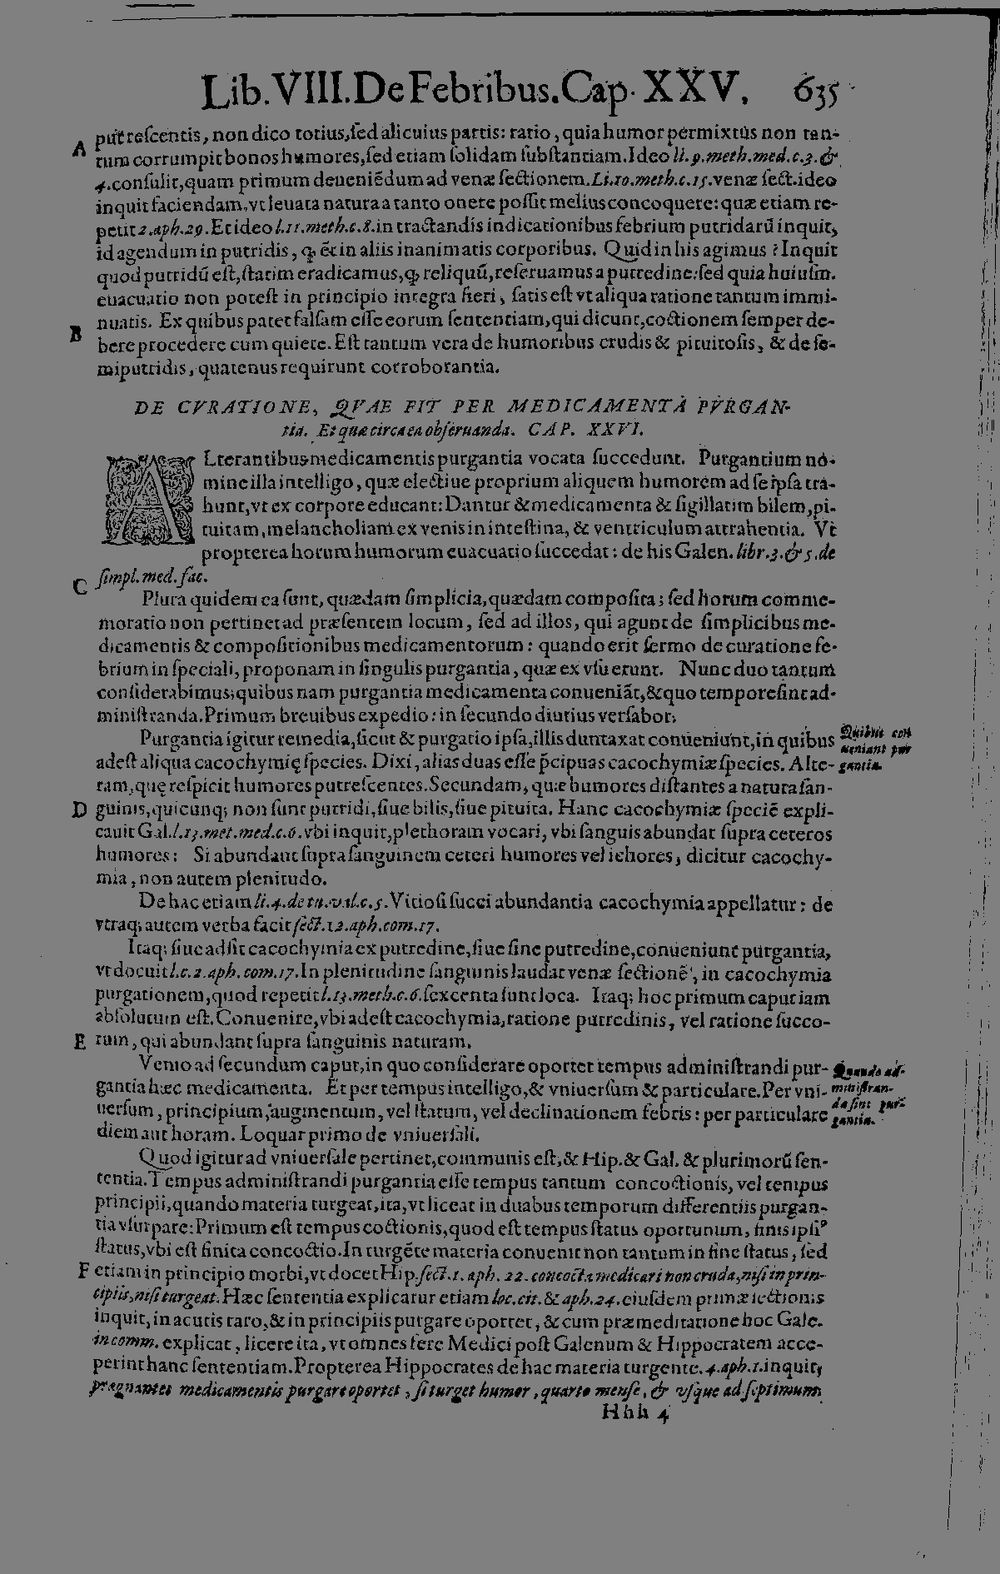 Lib. VIII. De Febribus. Cap. XXV. 635
A putrescentis, non dico totius, sed alicuius partis: ratio, quia humor permixtus non tan-
tum corrumpit bonos humores, sed etiam solidam substantiam. Ideo li. 9. meth. med. c. 3. &
4. consulit, quam primum deueniẽdum ad venæ sectionem. Li. 10. meth. c. 15. venæ sect. ideo
inquit faciendam, vt leuata natura a tanto onere possit melius concoquere: quæ etiam re-
petit 2. aph. 29. Et ideo l. 11. meth. c. 8. in tractandis indicationibus febrium putridarũ inquit,
id agendum in putridis, ꝙ & in aliis inanimatis corporibus. Quid in his agimus? Inquit
quod putridũ est, statim eradicamus, ꝙ reliquũ, reseruamus a putredine: sed quia huiusm.
euacuatio non potest in principio integra fieri, satis est vt aliqua ratione tantum immi-
B nuatis. Ex quibus patet falsam esse eorum sententiam, qui dicunt, coctionem semper de-
bere procedere cum quiete. Est tantum vera de humoribus crudis & pituitosis, & de se-
miputridis, quatenus requirunt corroborantia.
DE CVRATIONE, QVAE FIT PER MEDICAMENTA PVRGAN-
tia. Et quæ circa ea obseruanda. CAP. XXVI.
ALterantibus medicamentis purgantia vocata succedunt. Purgantium no-
mine illa intelligo, quæ electiue proprium aliquem humorem ad se ipsa tra-
hunt, vt ex corpore educant: Dantur & medicamenta & sigillatim bilem, pi-
tuitam, melancholiam ex venis in intestina, & ventriculum attrahentia. Vt
propterea horum humorum euacuatio succedat: de his Galen. libr. 3. & 5. de
C simpl. med. fac.
Plura quidem ea sunt, quædam simplicia, quædam composita; sed horum comme-
moratio non pertinet ad præsentem locum, sed ad illos, qui agunt de simplicibus me-
dicamentis & compositionibus medicamentorum: quando erit sermo de curatione fe-
brium in speciali, proponam in singulis purgantia, quæ ex vsu erunt. Nunc duo tantum
considerabimus; quibus nam purgantia medicamenta conueniãt, & quo tempore sint ad-
ministranda. Primum breuibus expedio: in secundo diutius versabor.
Purgantia igitur remedia, sicut & purgatio ipsa, illis duntaxat conueniunt, in quibus
adest aliqua cacochymię species. Dixi, alias duas esse p̃cipuas cacochymiæ species. Alte-
ram, quę respicit humores putrescentes. Secundam, quæ humores distantes a natura san-
D guinis, quicunq; non sunt putridi, siue bilis, siue pituita. Hanc cacochymiæ speciẽ expli-
cauit Gal. l. 13. met. med. c. 6. vbi inquit, plethoram vocari, vbi sanguis abundat supra ceteros
humores: Si abundant supra sanguinem ceteri humores vel ichores, dicitur cacochy-
mia, non autem plenitudo.
De hac etiam li. 4. de tu. val. c. 5. Vitiosi succi abundantia cacochymia appellatur: de
vtraq; autem verba facit sect. 12. aph. com. 17.
Itaq; siue adsit cacochymia ex putredine, siue sine putredine, conueniunt purgantia,
vt docuit l. c. 2. aph. com. 17. In plenitudine sanguinis laudat venæ sectionẽ, in cacochymia
purgationem, quod repetit l. 13. meth. c. 6. sexcenta sunt loca. Itaq; hoc primum caput iam
absolutum est. Conuenire, vbi adest cacochymia, ratione putredinis, vel ratione succo-
E rum, qui abundant supra sanguinis naturam.
Venio ad secundum caput, in quo considerare oportet tempus administrandi pur-
gantia hæc medicamenta. Et per tempus intelligo, & vniuersum & particulare. Per vni-
uersum, principium, augmentum, vel statum, vel declinationem febris: per particulare
diem aut horam. Loquar primo de vniuersali.
Quod igitur ad vniuersale pertinet, communis est, & Hip. & Gal. & plurimorũ sen-
tentia. Tempus administrandi purgantia esse tempus tantum concoctionis, vel tempus
principii, quando materia turgeat, ita, vt liceat in duabus temporum differentiis purgan-
tia vsurpare: Primum est tempus coctionis, quod est tempus status oportunum, finis ipsiꝰ
status, vbi est finita concoctio. In turgẽte materia conuenit non tantum in fine status, sed
F etiam in principio morbi, vt docet Hip. sect. 1. aph. 22. concocta medicari non cruda, nisi in prin-
cipiis, nisi turgeat. Hæc sententia explicatur etiam loc. cit. & aph. 24. eiusdem primæ sectionis
inquit, in acutis raro, & in principiis purgare oportet, & cum præmeditatione hoc Gale.
in comm. explicat, licere ita, vt omnes fere Medici post Galenum & Hippocratem acce-
perint hanc sententiam. Propterea Hippocrates de hac materia turgente. 4. aph. 1. inquit,
prægnantes medicamentis purgare oportet, si turget humor, quarto mense, & vsque ad septimum
Hhh 4
Quibus con
ueniant pur
gantia.
Quando ad-
ministran-
da sint pur-
gantia.